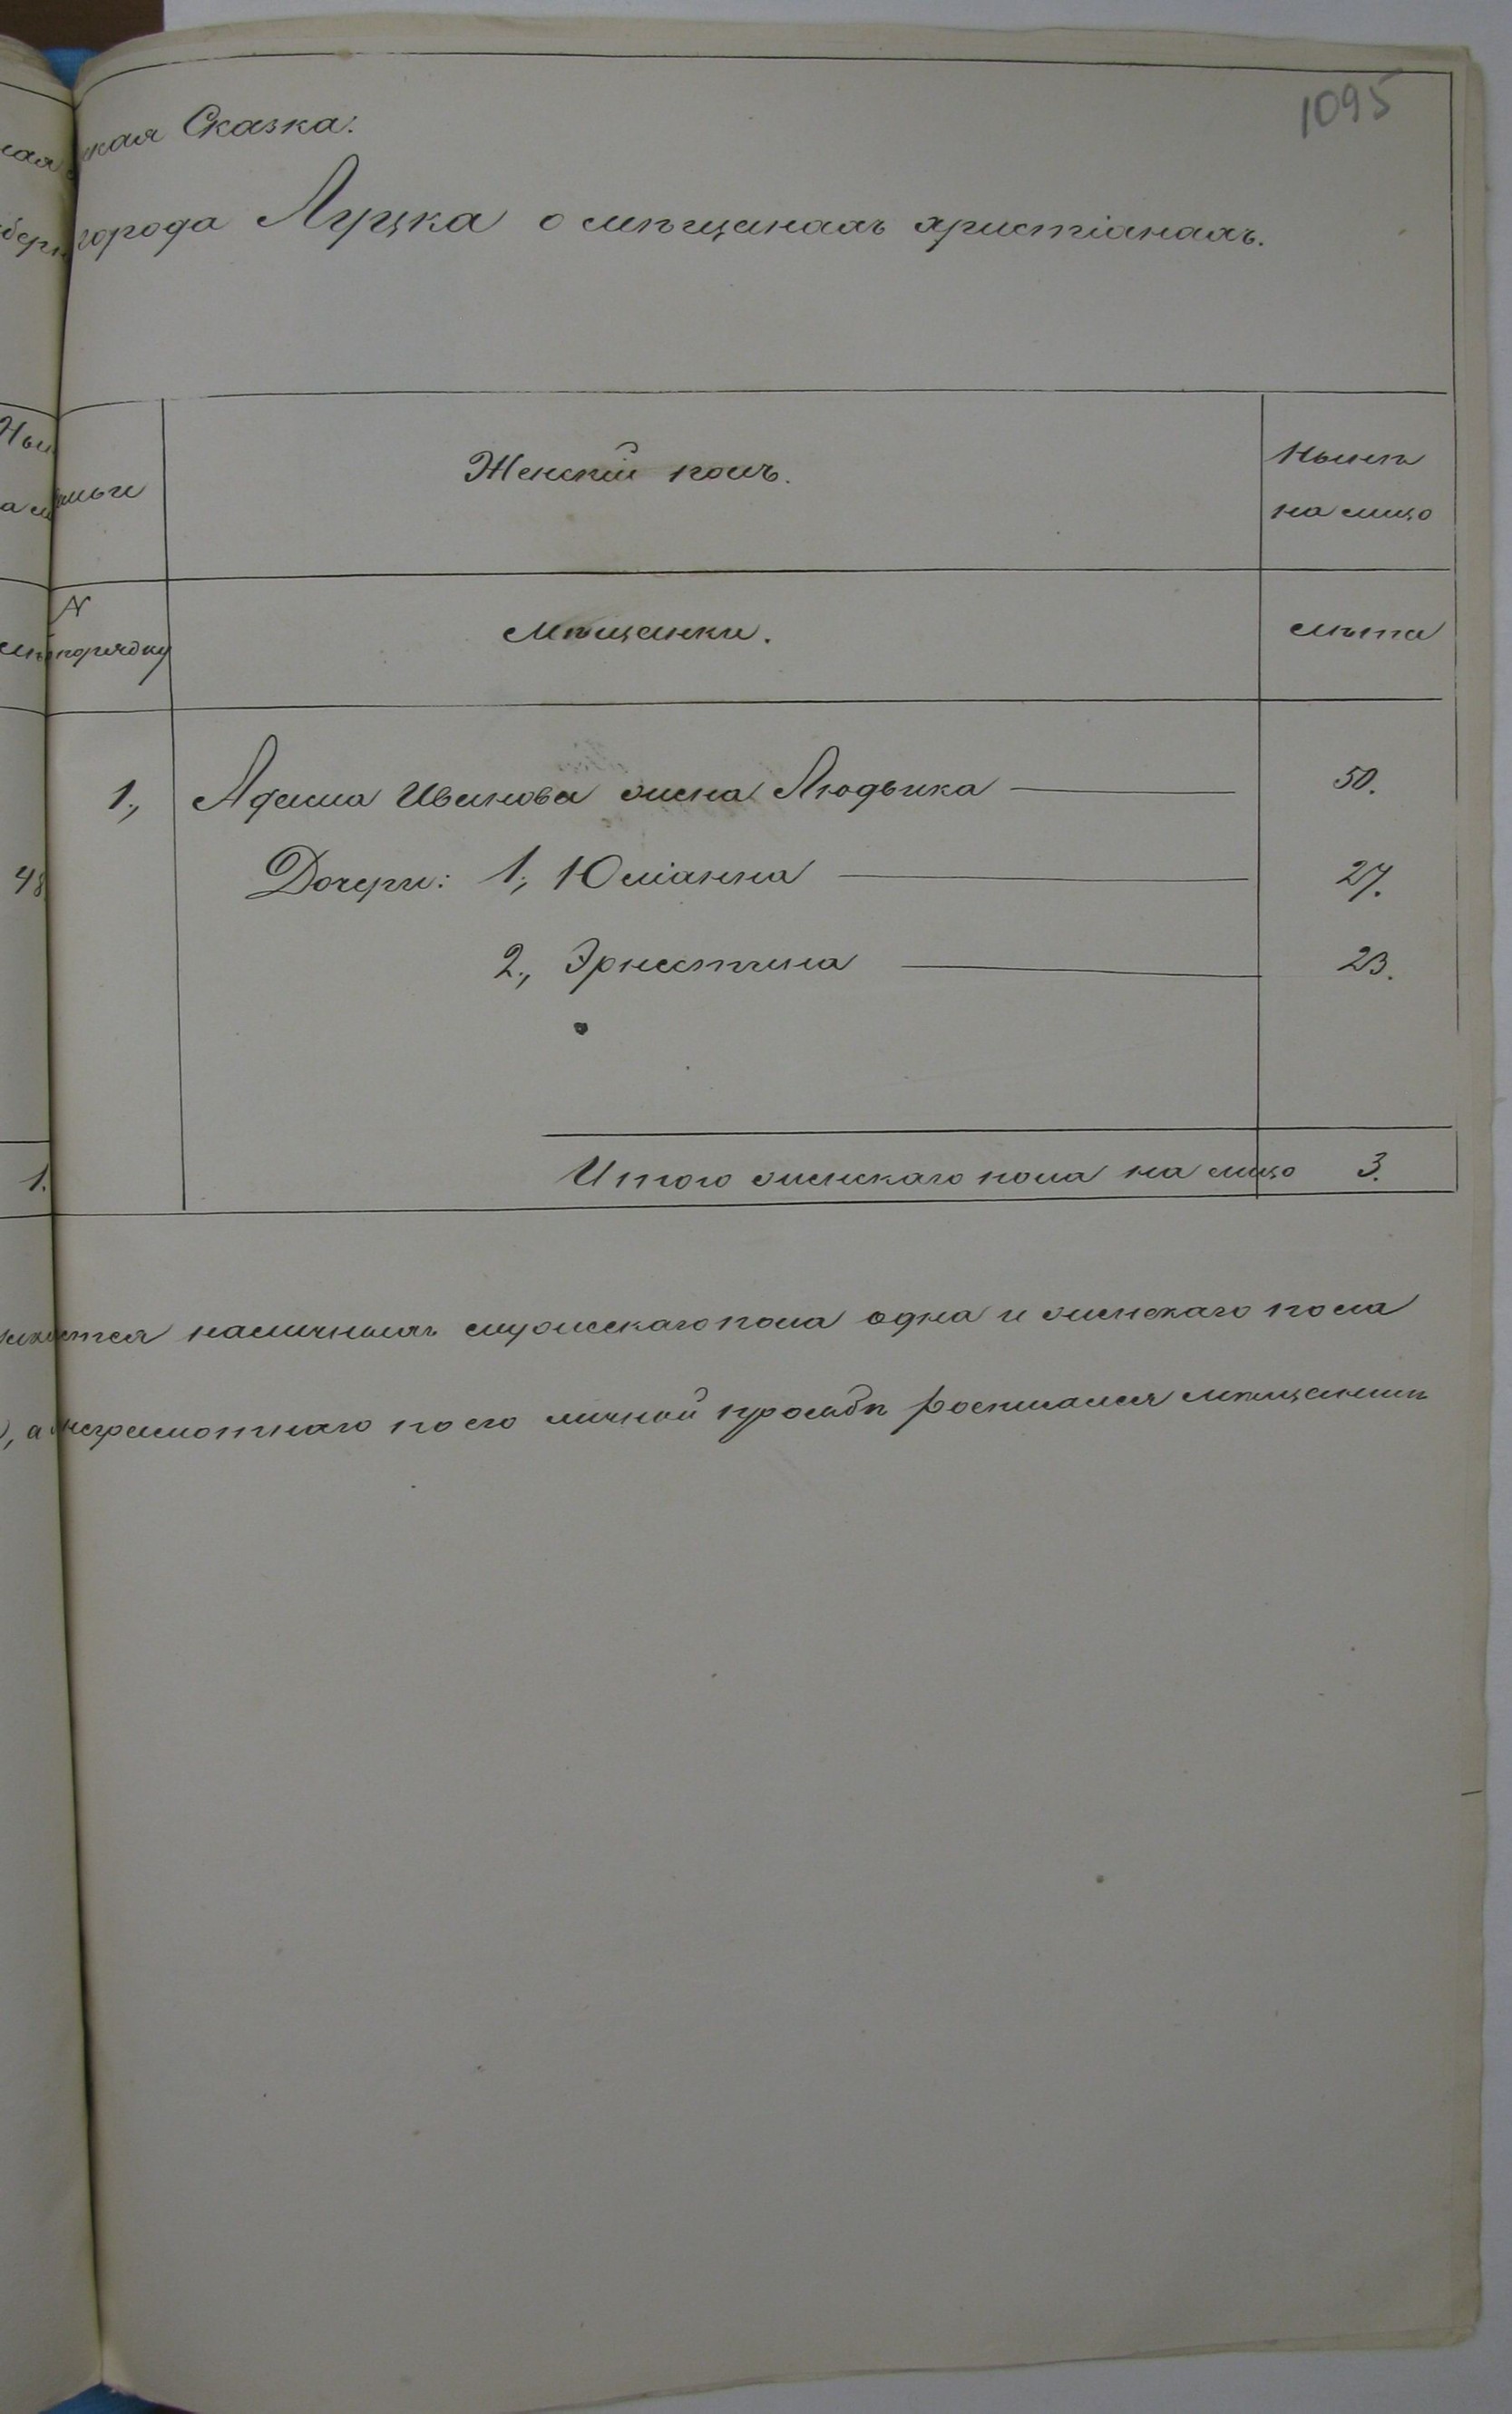 1095
ская Сказка.
города Луцка о мѣщанахъ христіанахъ.
Женскій полъ.
Нынѣ
на лицо
№
порядку
Мѣщанки.
Лѣта
1., Адама Иванова жена Людвика 50.
Дочери: 1., Юліанна 27.
2., Эрнестина 23.
Итого женскаго пола на лицо 3.
наличныхъ мужескаго пола одна и женскаго пола
, а неграмотнаго по его личной просьбѣ росписался мѣщанинъ
48
1.